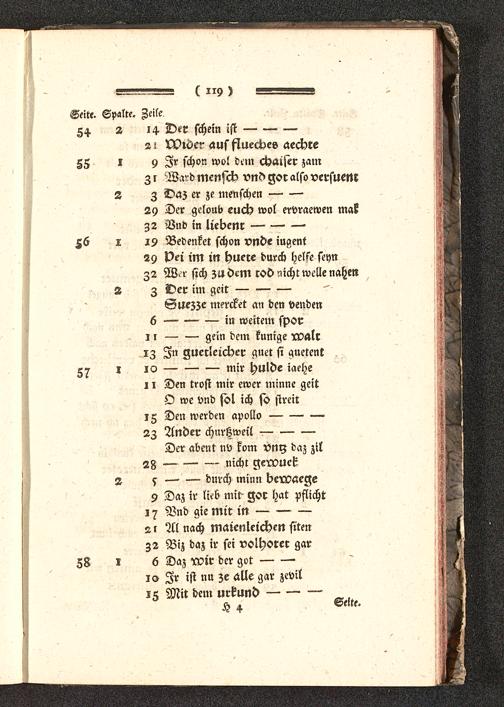 ( 119 )
Seite. Spalte. Zeile.
54 2 14 Der schein ist — — —
21 Wider aus flueches aechte
55 1 9 Ir schon wol dem chaiser zam
31 Ward mensch vnd got also versuent
2 3 Daz er ze menschen — —
29 Der geloub euch wol ervraewen mak
32 Vnd in liebent — — —
56 1 19 Bedenket schon vnde iugent
29 Pei im in huete durch helfe seyn
32 Wer sich zu dem tod nicht welle nahen
2 3 Der im geit — — —
Suezze mercket an den venden
6 — — — in weitem spor
11 — — gein dem kunige walt
13 In guetleicher guet si guetent
57 1 10 — — — — mir hulde iaehe
11 Den trost mir ewer minne geit
O we vnd sol ich so streit
15 Den werden apollo — — —
23 Ander churtzweil — — —
Der abent nv kom vntz daz zil
28 — — — nicht gewuck
2 5 — — durch minn bewaege
9 Daz ir lieb mit got hat pflicht
17 Vnd gie mit in — — —
21 Al nach maienleichen siten
32 Biz daz ir sei volhotet gar
58 1 6 Daz wir der got — —
10 Ir ist nu ze alle gar zevil
15 Mit dem urkund — — —
H 4 Seite.